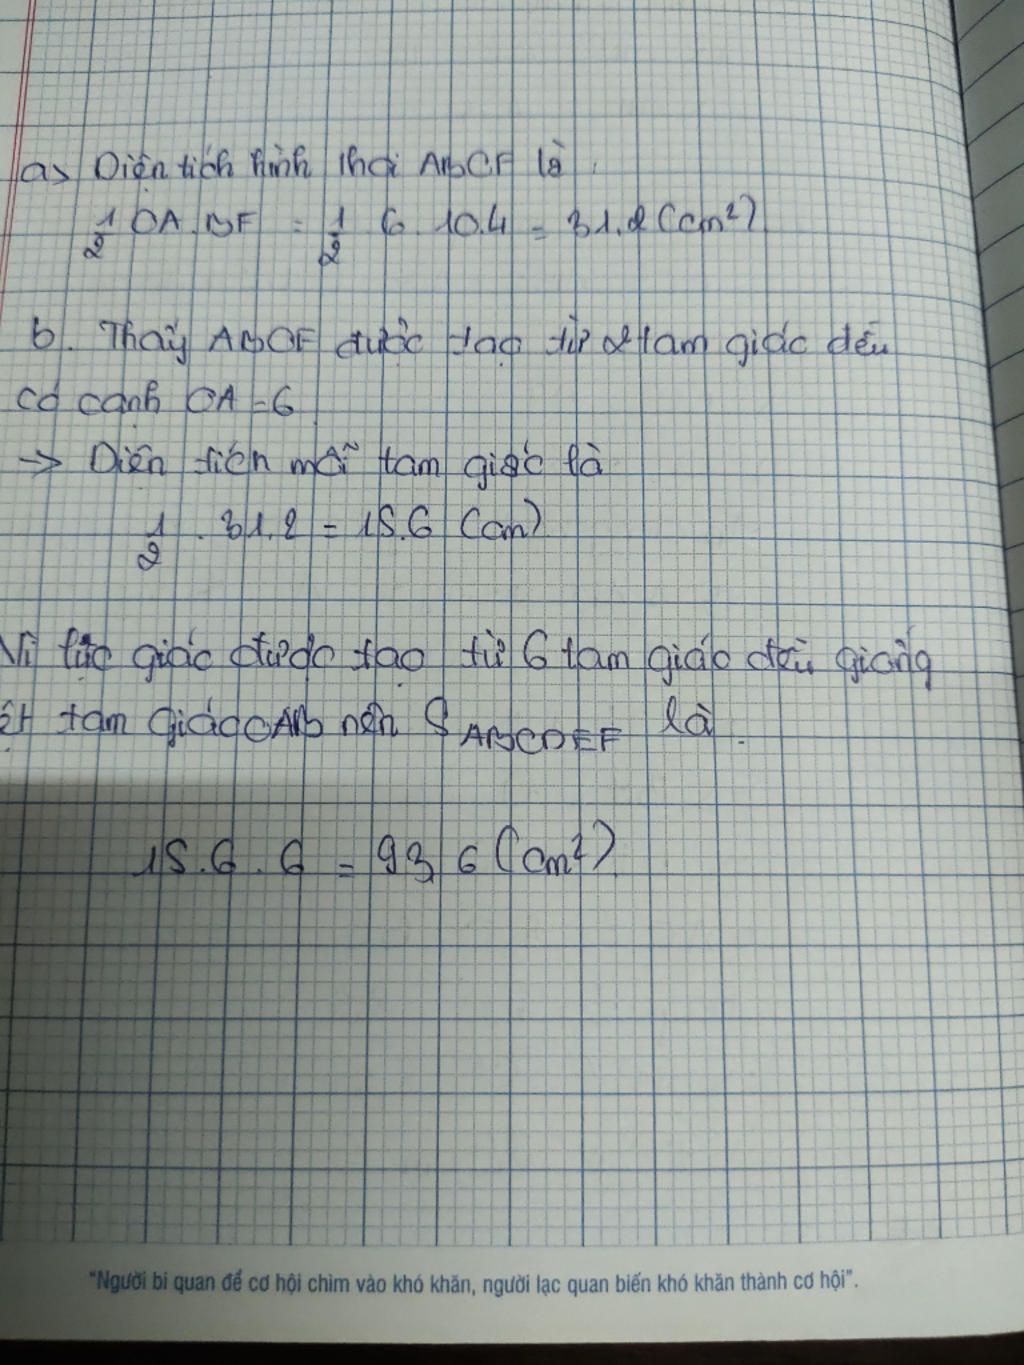 a) Diện tích hình thoi ABCF là
1/2 OA.BF = 1/2 6.10.4 = 31.2 (cm²)
b. Thấy ABOF được tạo từ 2 tam giác đều
có cạnh OA = 6
→ Diện tích mỗi tam giác là
1/2 . 31.2 = 15.6 (cm)
Vì lục giác được tạo từ 6 tam giác đều giống
ệt tam giác OAB nên S ABCDEF là
15.6.6 = 93,6 (cm²)
"Người bi quan để cơ hội chìm vào khó khăn, người lạc quan biến khó khăn thành cơ hội".